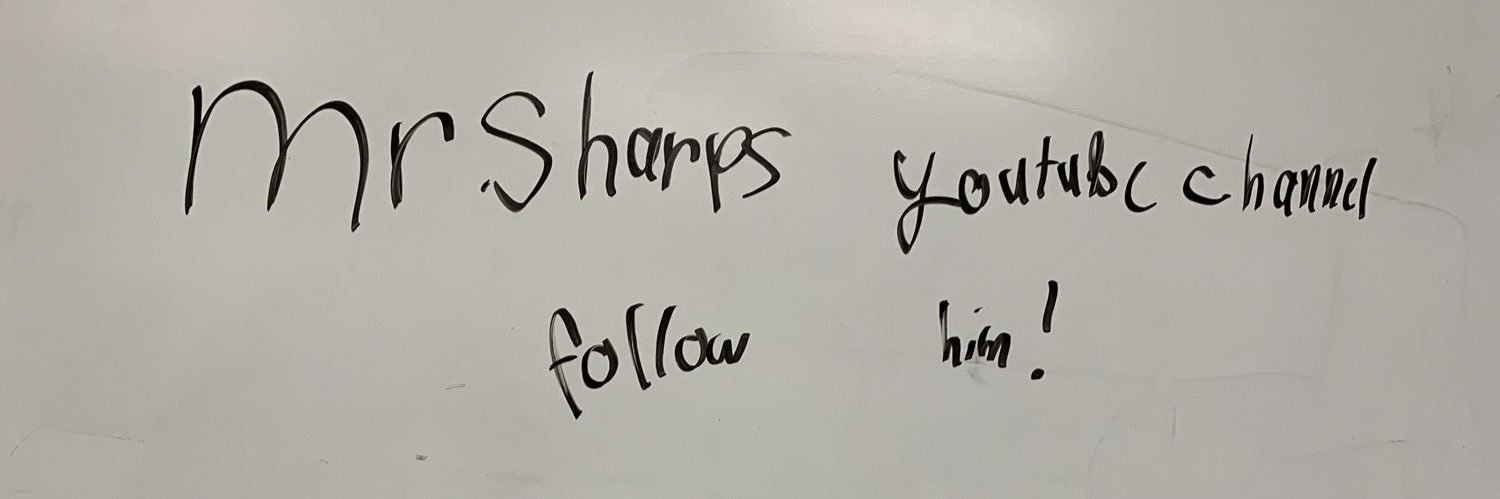 Mr. Sharps youtube channel
follow him!